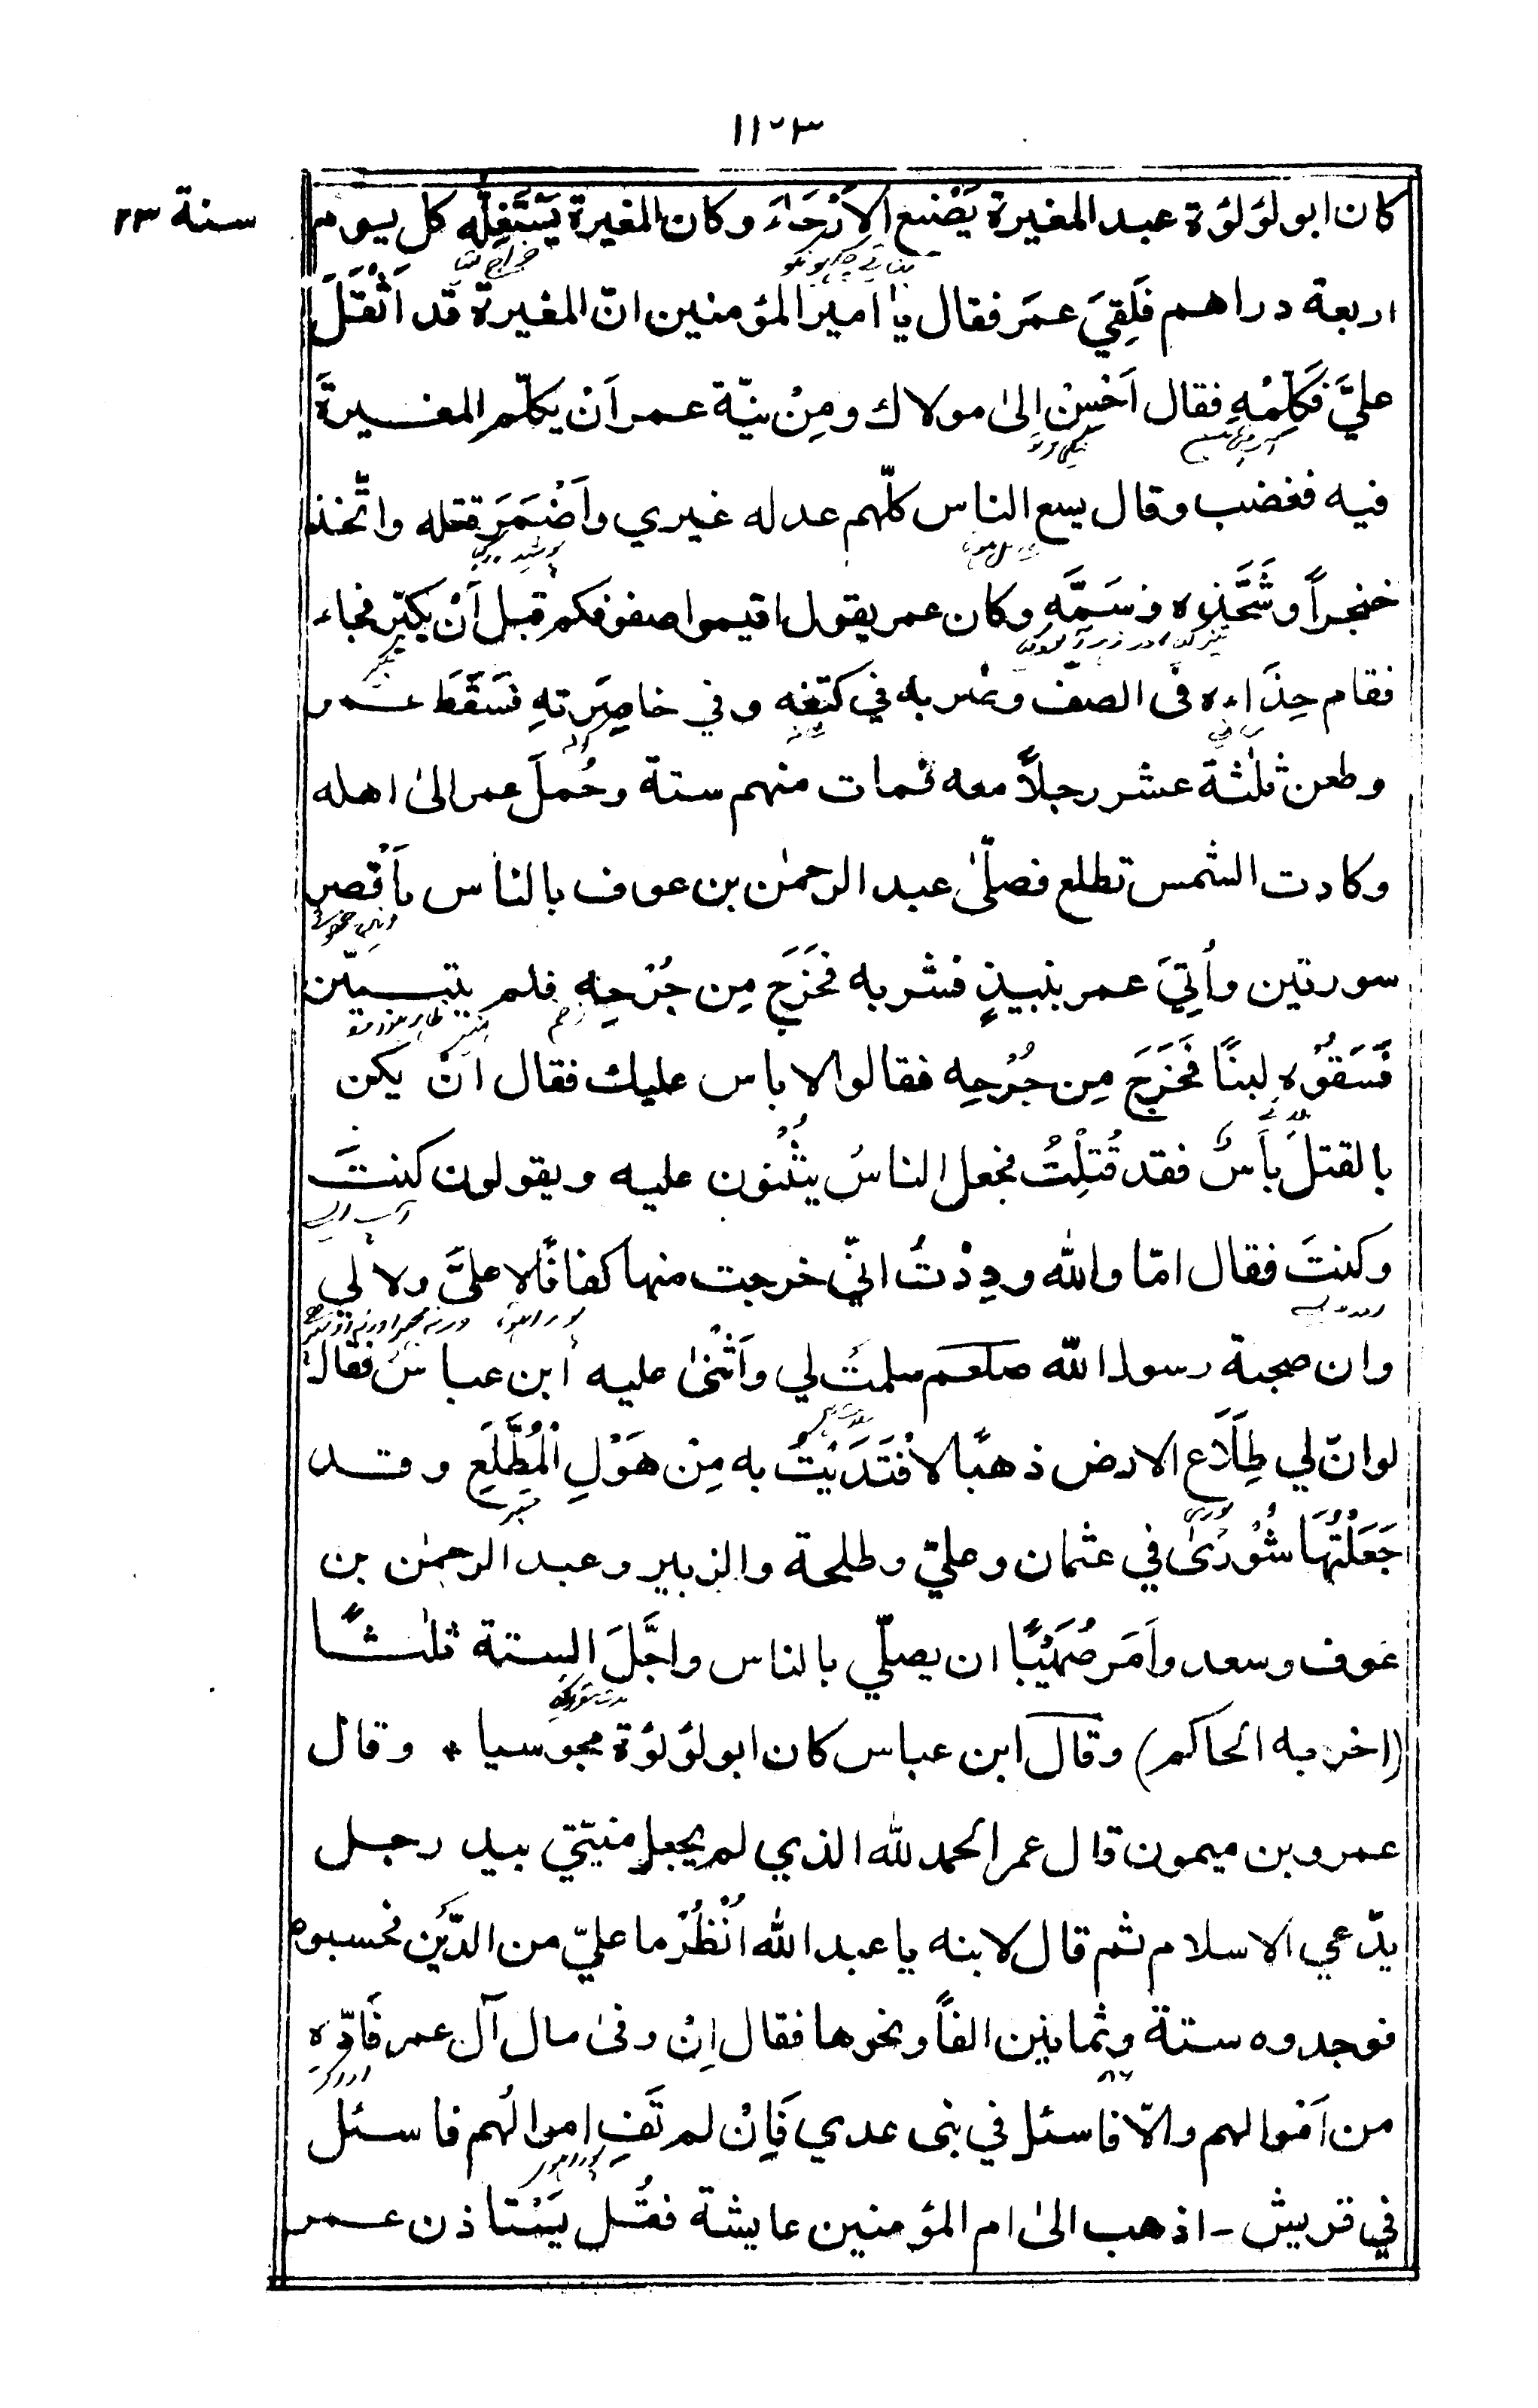 ١١٢٣
سنة ٢٣
كان ابو لؤلؤة عبد المغيرة يَصْنع الاَرْحَاءَ وكان المغيرة يَسْتَغِلّه كل يوم
اربعة دراهم فَلَقِيَ عمَر فقال يا امير المؤمنين انّ المغيرة قد اَثْقَلَ
عليَّ فَكَلِّمْهِ فقال اَحْسِنْ اِلىٰ مولاك ومِنْ نيّة عمر اَنْ يكلّم المغيرةَ
فيه فغضب وقال يسع الناس كلّهم عدله غيري واَضْمَرَ قتله واتّخذ
خنجراً وشَحَّذه وسَمَّهِ وكان عمر يقول اقيموا صفوفكم قبل اَنْ يكبّر فجاء
فقام حِذَاءه فى الصفّ وضربه في كتفه وفي خاصِرَتهِ فسَقَطَ عمر
وطعن ثلٰثة عشر رجلاً معه فمات منهم ستة وحُملَ عمر الىٰ اهله
وكادت الشمس تطلع فصلّىٰ عبد الرحمٰن بن عوف بالناس باَقْصر
سورتين واُتِيَ عمر بنبيذٍ فشربه فخَرَجَ مِن جُرْحِهِ فلم يتبيّن
فَسَقَوْه لبنًا فخَرَجَ مِن جُرْحِه فقالوا لا باس عليك فقال اَنْ يكن
بالقتل بَأسٌ فقد قُتِلْتُ فجعل الناسُ يثْنُون عليه ويقولون كنتَ
وكنتَ فقال امّا والله ودِدْتُ انّي خرجت منها كفافًا لا عليَّ ولا لي
وان صحبة رسول الله صلعم سلمتْ لي واَثْنىٰ عليه ابن عباس فقال
لو انّ لي طِلَاع الارض ذهبًا لافْتَدَيْتُ به مِنْ هَوْلِ الْمُطَّلَعِ وقد
جَعَلْتُهَا شُوْرىٰ في عثمان وعليّ وطلحة والزبير وعبد الرحمٰن بن
عوف وسعد واَمَر صُهَيْبًا ان يصلّي بالناس واجَّلَ الستة ثلٰثًا
(اخرجه الحاكم) وقال ابن عباس كان ابو لؤلؤة مجوسيا * وقال
عمرو بن ميمون قال عمر الحمد لله الذي لم يجعل منيّتي بيد رجل
يدّعي الاسلام ثم قال لابنه يا عبد الله انْظُرْ ما عليّ من الدَّين فحسبوه
فوجدوه ستة وثمانين الفاً ونحوها فقال اِنْ وفىٰ مال آل عمر فَادِّه
من اَموالهم والّا فاسئل في بنى عدي فَاِنْ لم تَفِ اموالُهم فاسئل
في قريش - اذهب الىٰ ام المؤمنين عايشة فقُل يَسْتاذن عمر